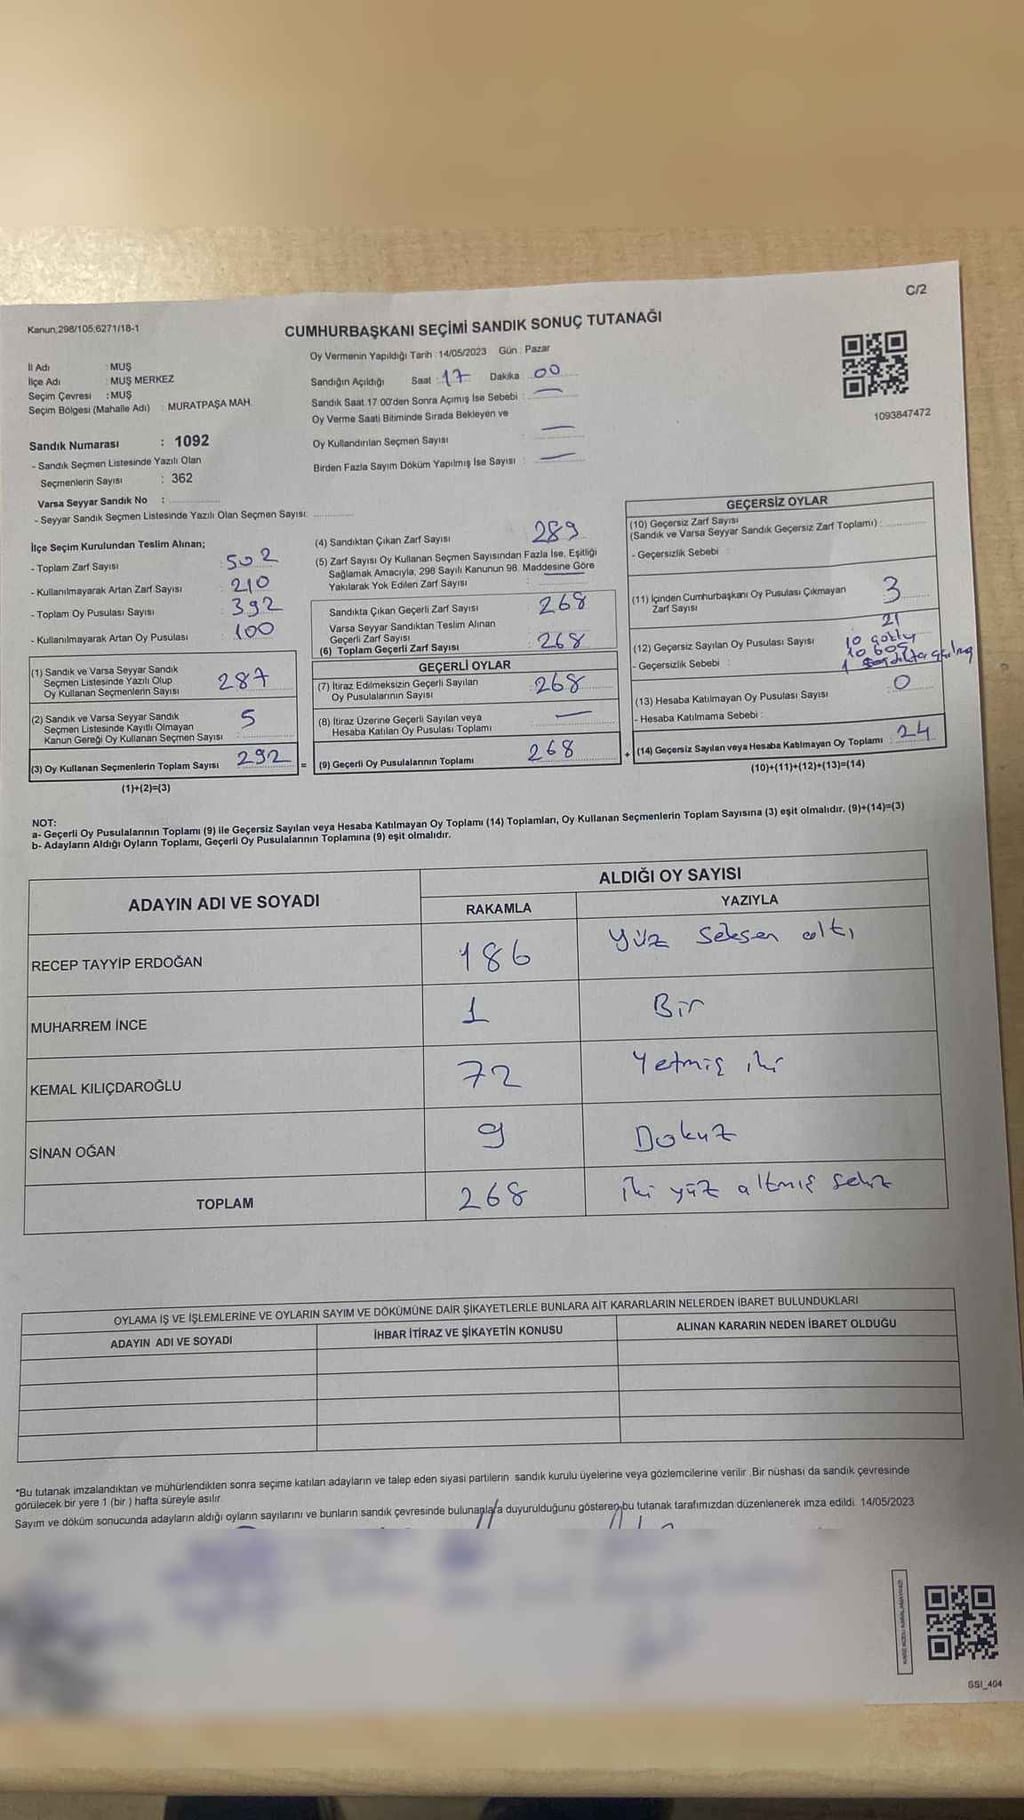 C/2
Kanun;298/105;6271/18-1
CUMHURBAŞKANI SEÇİMİ SANDIK SONUÇ TUTANAĞI
İl Adı : MUŞ
İlçe Adı : MUŞ MERKEZ
Seçim Çevresi : MUŞ
Seçim Bölgesi (Mahalle Adı) : MURATPAŞA MAH.
Sandık Numarası : 1092
- Sandık Seçmen Listesinde Yazılı Olan
Seçmenlerin Sayısı : 362
Varsa Seyyar Sandık No :
- Seyyar Sandık Seçmen Listesinde Yazılı Olan Seçmen Sayısı:
Oy Vermenin Yapıldığı Tarih : 14/05/2023 Gün : Pazar
Sandığın Açıldığı Saat : 17 Dakika : 00
Sandık Saat 17.00'den Sonra Açmış İse Sebebi : —
Oy Verme Saati Bitiminde Sırada Bekleyen ve
Oy Kullandırılan Seçmen Sayısı —
Birden Fazla Sayım Döküm Yapılmış İse Sayısı : —
1093847472
İlçe Seçim Kurulundan Teslim Alınan;
- Toplam Zarf Sayısı : 502
- Kullanılmayarak Artan Zarf Sayısı : 210
- Toplam Oy Pusulası Sayısı : 392
- Kullanılmayarak Artan Oy Pusulası : 100
(1) Sandık ve Varsa Seyyar Sandık
Seçmen Listesinde Yazılı Olup
Oy Kullanan Seçmenlerin Sayısı 287
(2) Sandık ve Varsa Seyyar Sandık
Seçmen Listesinde Kayıtlı Olmayan
Kanun Gereği Oy Kullanan Seçmen Sayısı : 5
(3) Oy Kullanan Seçmenlerin Toplam Sayısı 292
(1)+(2)=(3)
=
(4) Sandıktan Çıkan Zarf Sayısı 289
(5) Zarf Sayısı Oy Kullanan Seçmen Sayısından Fazla İse, Eşitliği
Sağlamak Amacıyla, 298 Sayılı Kanunun 98. Maddesine Göre
Yakılarak Yok Edilen Zarf Sayısı
Sandıkta Çıkan Geçerli Zarf Sayısı : 268
Varsa Seyyar Sandıktan Teslim Alınan
Geçerli Zarf Sayısı
(6) Toplam Geçerli Zarf Sayısı : 268
GEÇERLİ OYLAR
(7) İtiraz Edilmeksizin Geçerli Sayılan
Oy Pusulalarının Sayısı : 268
(8) İtiraz Üzerine Geçerli Sayılan veya
Hesaba Katılan Oy Pusulası Toplamı —
(9) Geçerli Oy Pusulalarının Toplamı 268
+
GEÇERSİZ OYLAR
(10) Geçersiz Zarf Sayısı
(Sandık ve Varsa Seyyar Sandık Geçersiz Zarf Toplamı) :
- Geçersizlik Sebebi :
(11) İçinden Cumhurbaşkanı Oy Pusulası Çıkmayan
Zarf Sayısı 3
(12) Geçersiz Sayılan Oy Pusulası Sayısı 21
- Geçersizlik Sebebi : 10 çoklu
10 boş
1
(13) Hesaba Katılmayan Oy Pusulası Sayısı 0
- Hesaba Katılmama Sebebi :
(14) Geçersiz Sayılan veya Hesaba Katılmayan Oy Toplamı : 24
(10)+(11)+(12)+(13)=(14)
NOT:
a- Geçerli Oy Pusulalarının Toplamı (9) ile Geçersiz Sayılan veya Hesaba Katılmayan Oy Toplamı (14) Toplamları, Oy Kullanan Seçmenlerin Toplam Sayısına (3) eşit olmalıdır. (9)+(14)=(3)
b- Adayların Aldığı Oyların Toplamı, Geçerli Oy Pusulalarının Toplamına (9) eşit olmalıdır.
ADAYIN ADI VE SOYADI ALDIĞI OY SAYISI
RAKAMLA YAZIYLA
RECEP TAYYİP ERDOĞAN 186 Yüz seksen altı
MUHARREM İNCE 1 Bir
KEMAL KILIÇDAROĞLU 72 Yetmiş iki
SİNAN OĞAN 9 Dokuz
TOPLAM 268 iki yüz altmış sekiz
OYLAMA İŞ VE İŞLEMLERİNE VE OYLARIN SAYIM VE DÖKÜMÜNE DAİR ŞİKAYETLERLE BUNLARA AİT KARARLARIN NELERDEN İBARET BULUNDUKLARI
ADAYIN ADI VE SOYADI İHBAR İTİRAZ VE ŞİKAYETİN KONUSU ALINAN KARARIN NEDEN İBARET OLDUĞU
*Bu tutanak imzalandıktan ve mühürlendikten sonra seçime katılan adayların ve talep eden siyasi partilerin sandık kurulu üyelerine veya gözlemcilerine verilir .Bir nüshası da sandık çevresinde
görülecek bir yere 1 (bir ) hafta süreyle asılır.
Sayım ve döküm sonucunda adayların aldığı oyların sayılarını ve bunların sandık çevresinde bulunanlara duyurulduğunu gösteren bu tutanak tarafımızdan düzenlenerek imza edildi. 14/05/2023
SSI_404